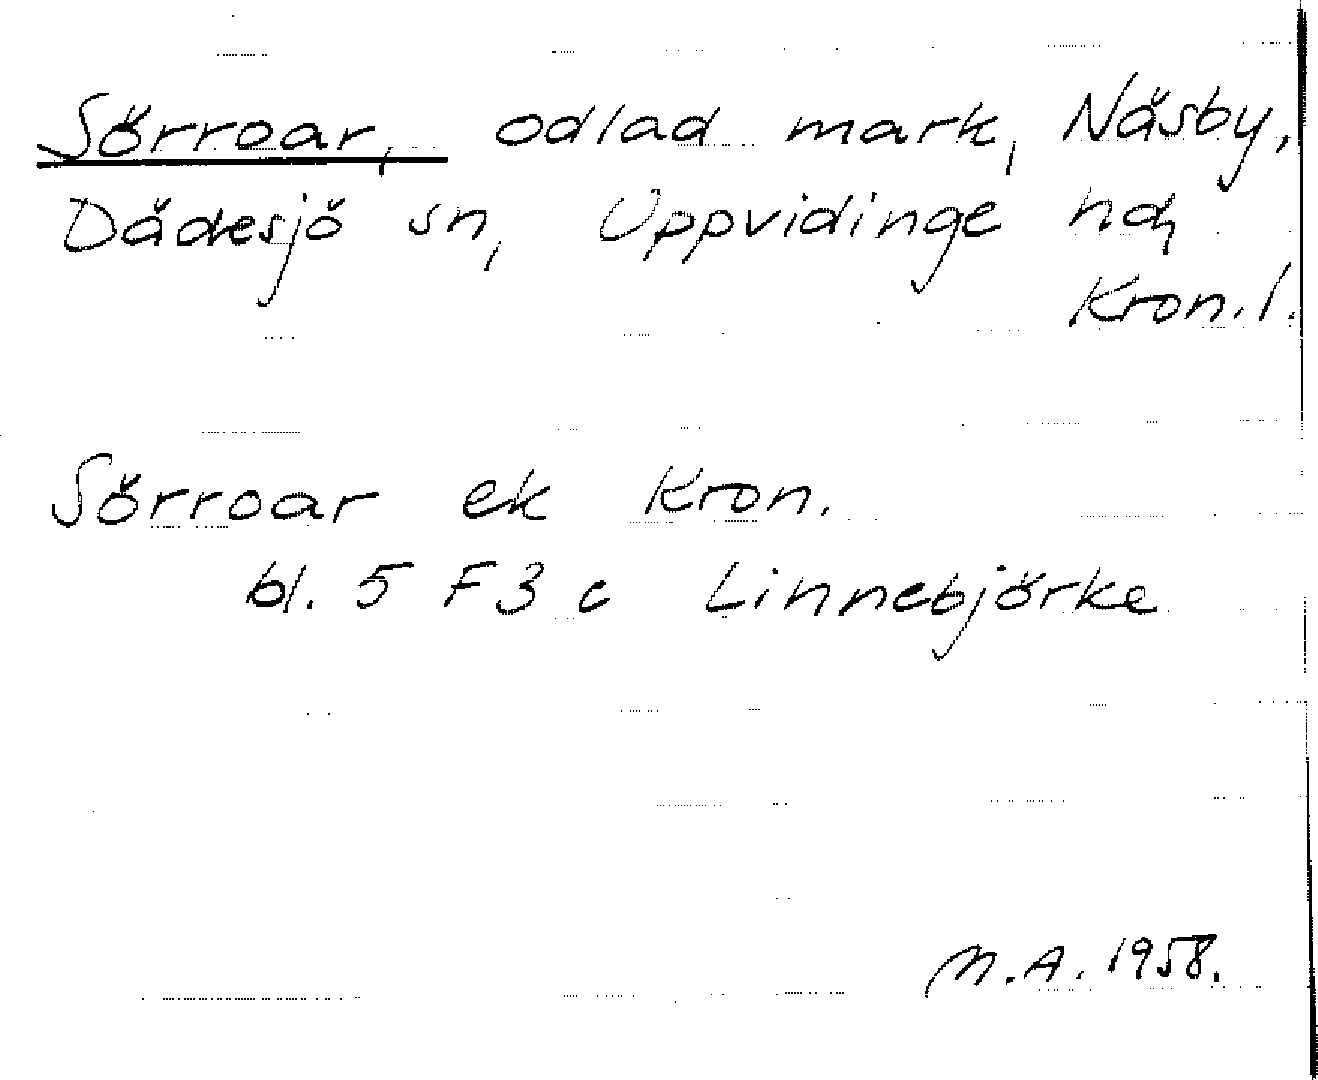 Sörroar, odlad mark, Näsby,
Dädesjö sn, Uppvidinge hd,
Kron. l.
Sörroar ek Kron.
bl. 5 F 3 c Linnebjörke
M.A. 1958.